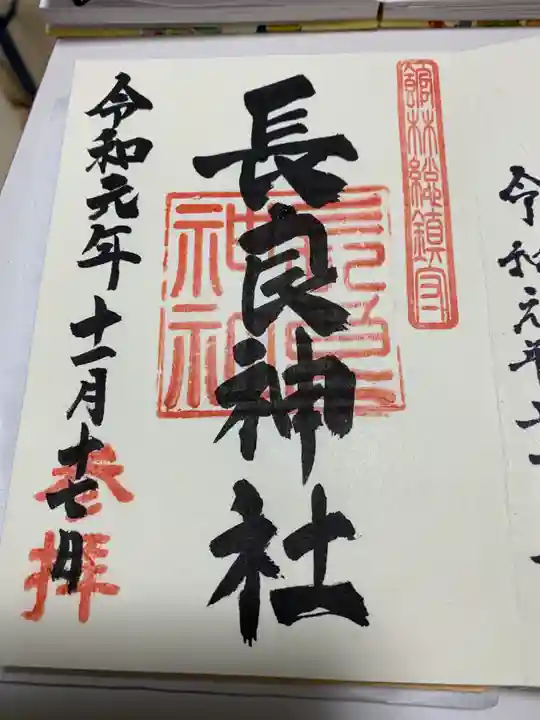 館林総鎮守
長良神社
長良
神社
令和元年十一月十七日
参拝
令和元年十一